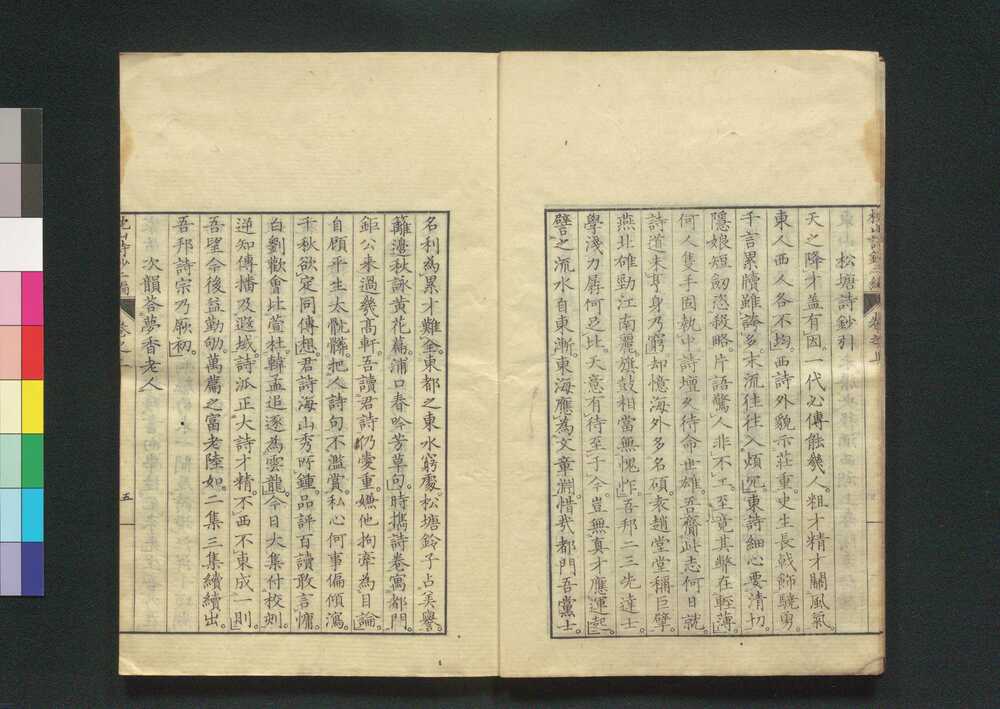 枕山詩鈔二編 卷之上
東山松塘詩鈔引
天之降才蓋有因。一代必傳能幾人。粗才精才關風氣。
東人西人各不均。西詩外貌示莊重。史生長戟飾驍勇。
千言累牘雖誇多。末流往往入煩冗。東詩細心要清切。
隱娘短劒恣殺略。片語驚人非不工。至竟其弊在輕薄。
何人隻手固執中。詩壇久待命世雄。吾齎此志何日就。
詩道未亨身乃窮。却憶海外多名碩。袁趙堂堂稱巨擘。
燕北雄勁江南麗。旗鼓相當無愧怍。吾邦二三先達士。
學淺力孱何足比。天意有待至于今。豈無真才應運起。
譬之流水自東漸。東海應為文章淵。惜哉都門吾黨士。
名利為累才難全。東都之東水窮處。松塘鈴子占美譽。
籬邊秋詠黃花篇。浦口春吟芳草句。時攜詩卷寓都門。
鉅公來過幾高軒。吾讀君詩仍愛重。嫌他拘牽為目論。
自願平生太骯髒。把人詩句不濫賞。私心何事偏傾瀉。
千秋欲定同傳想。君詩海山秀所鍾。品評百讀敢言慵。
白劉歡會比萱杜。韓孟追逐為雲龍。今日大集付校刻。
逆知傳播及遐域。詩派正大詩才精。不西不東成一則。
吾望今後益勤劬。萬篇之富老陸如。二集三集續續出。
吾邦詩宗乃厥初。
次韻答夢香老人
枕山詩鈔二編 卷之一 五